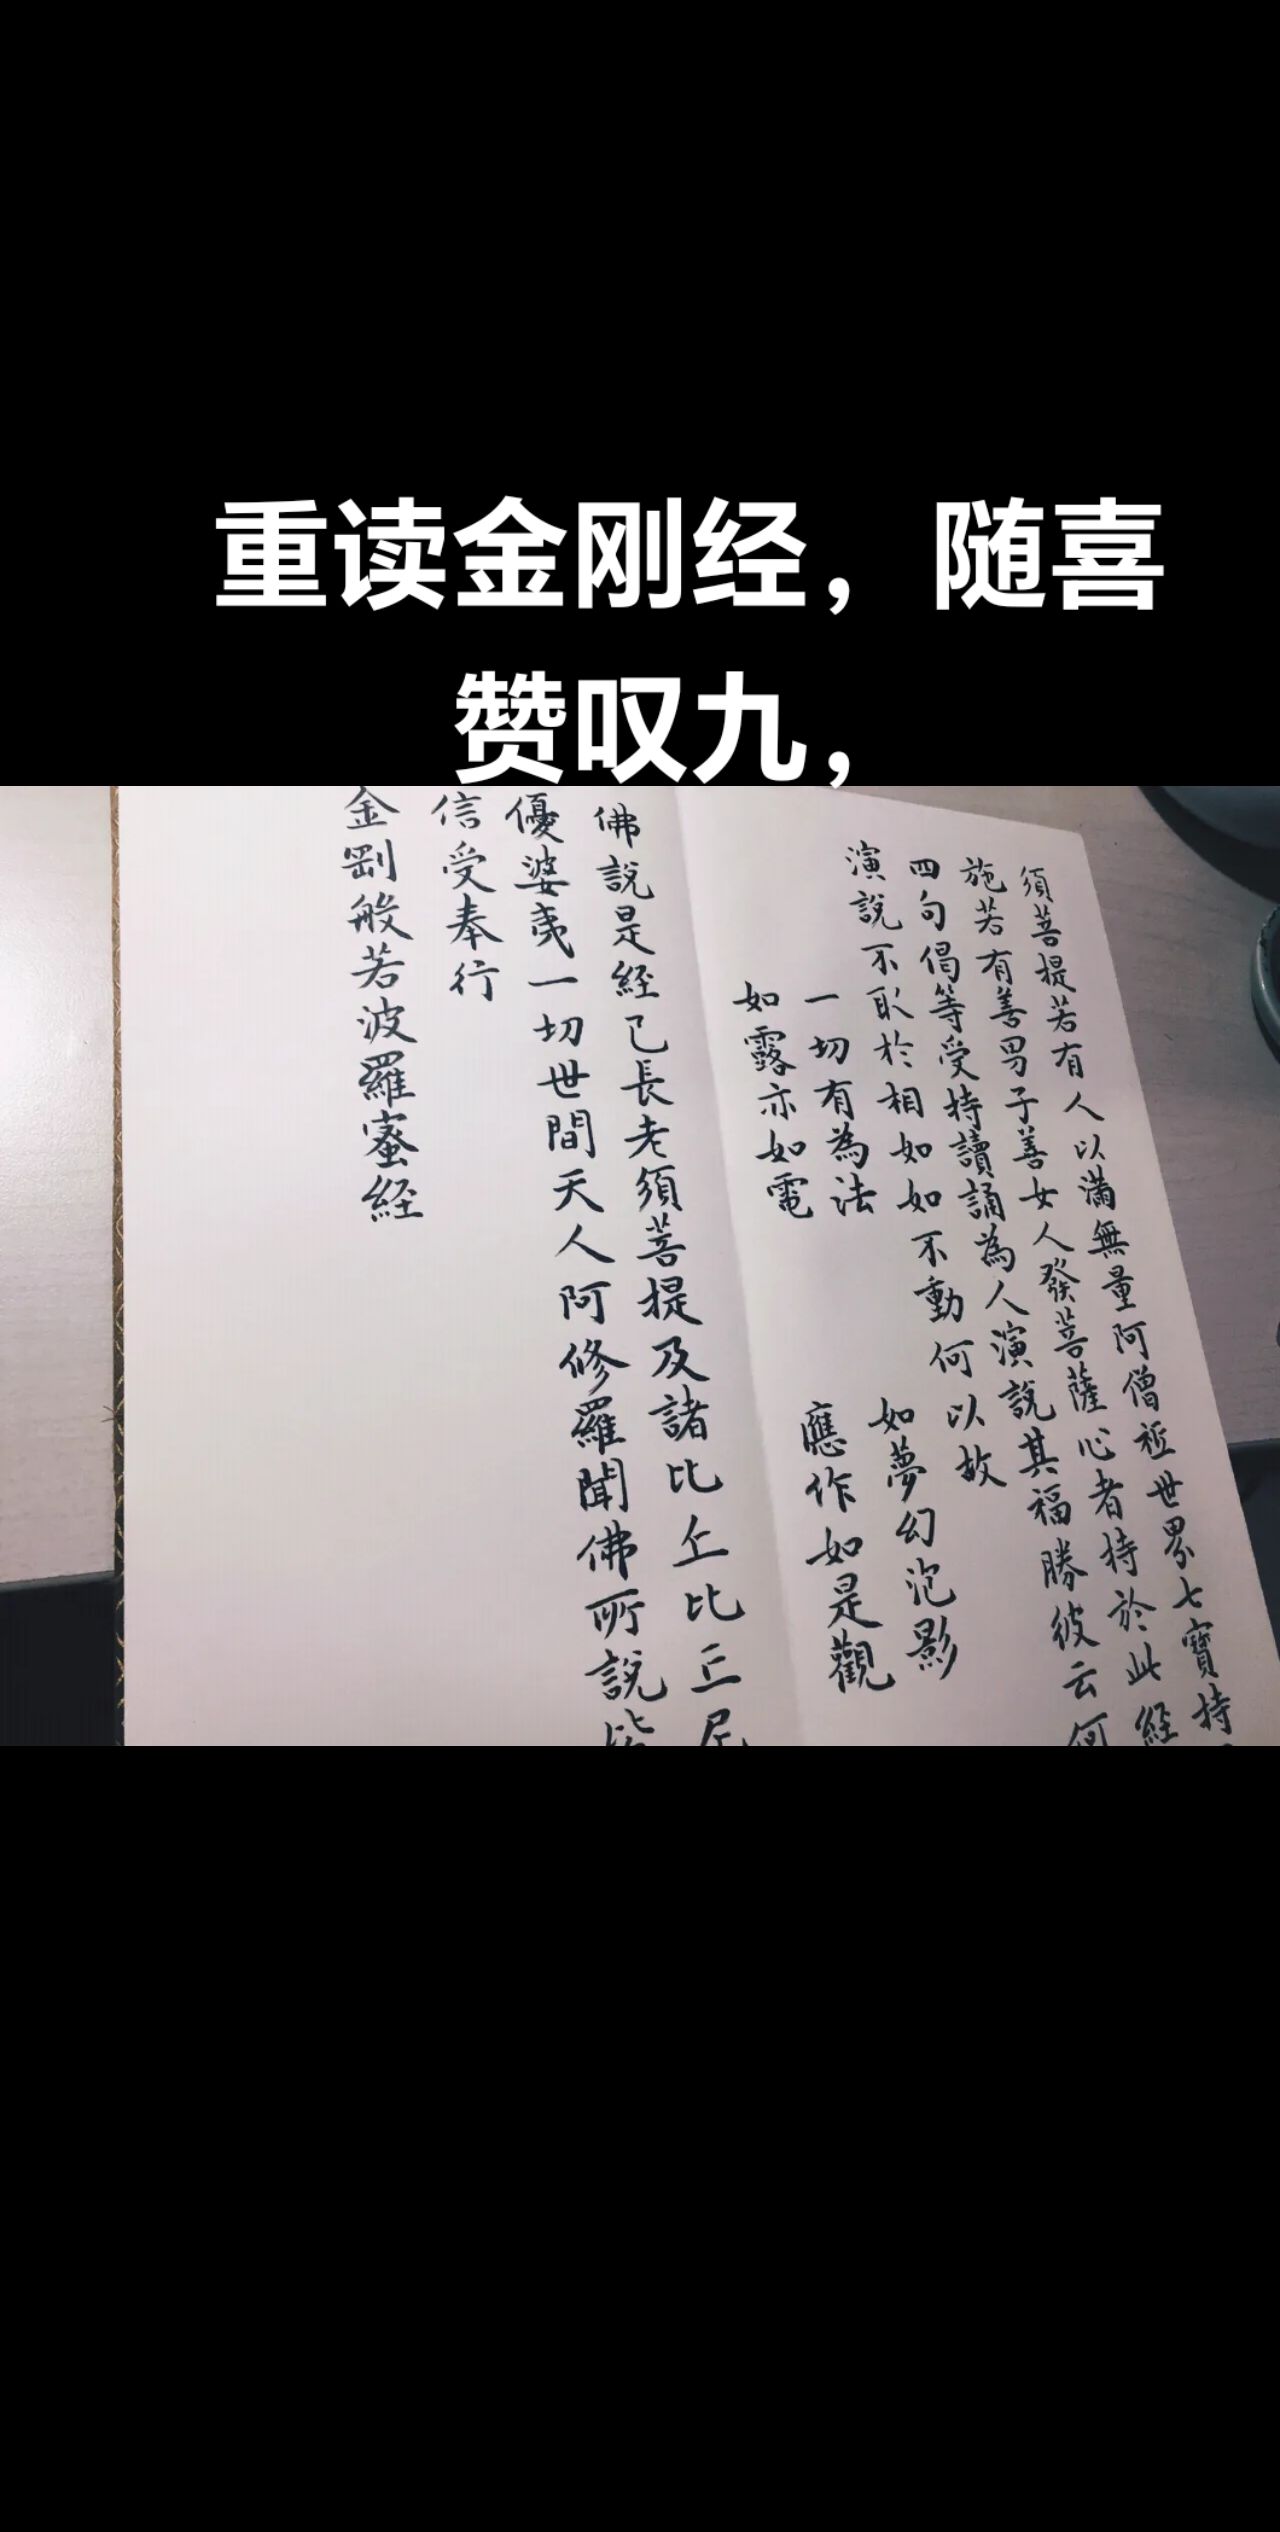 重读金刚经，随喜
赞叹九，
須菩提若有人以滿無量阿僧祇世界七寶持
施若有善男子善女人發菩薩心者持於此經
四句偈等受持讀誦為人演說其福勝彼云何
演說不取於相如如不動何以故
一切有為法 如夢幻泡影
如露亦如電 應作如是觀
佛說是經已長老須菩提及諸比丘比丘尼
優婆夷一切世間天人阿修羅聞佛所說皆
信受奉行
金剛般若波羅蜜經